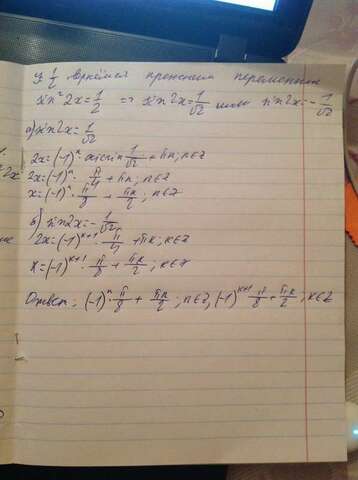 З 1/2 вернёмся прежним переменным
sin² 2x = 1/2 => sin 2x = 1/√2 или sin 2x = - 1/√2
а) sin 2x = 1/√2
2x = (-1)ⁿ · arcsin 1/√2 + πn; n∈Z
2x = (-1)ⁿ · π/4 + πn; n∈Z
x = (-1)ⁿ · π/8 + πn/2; n∈Z
б) sin 2x = - 1/√2
2x = (-1)ᵏ⁺¹ · π/4 + πk; k∈Z
x = (-1)ᵏ⁺¹ · π/8 + πk/2; k∈Z
Ответ: (-1)ⁿ · π/8 + πn/2; n∈Z, (-1)ᵏ⁺¹ · π/8 + πk/2; k∈Z